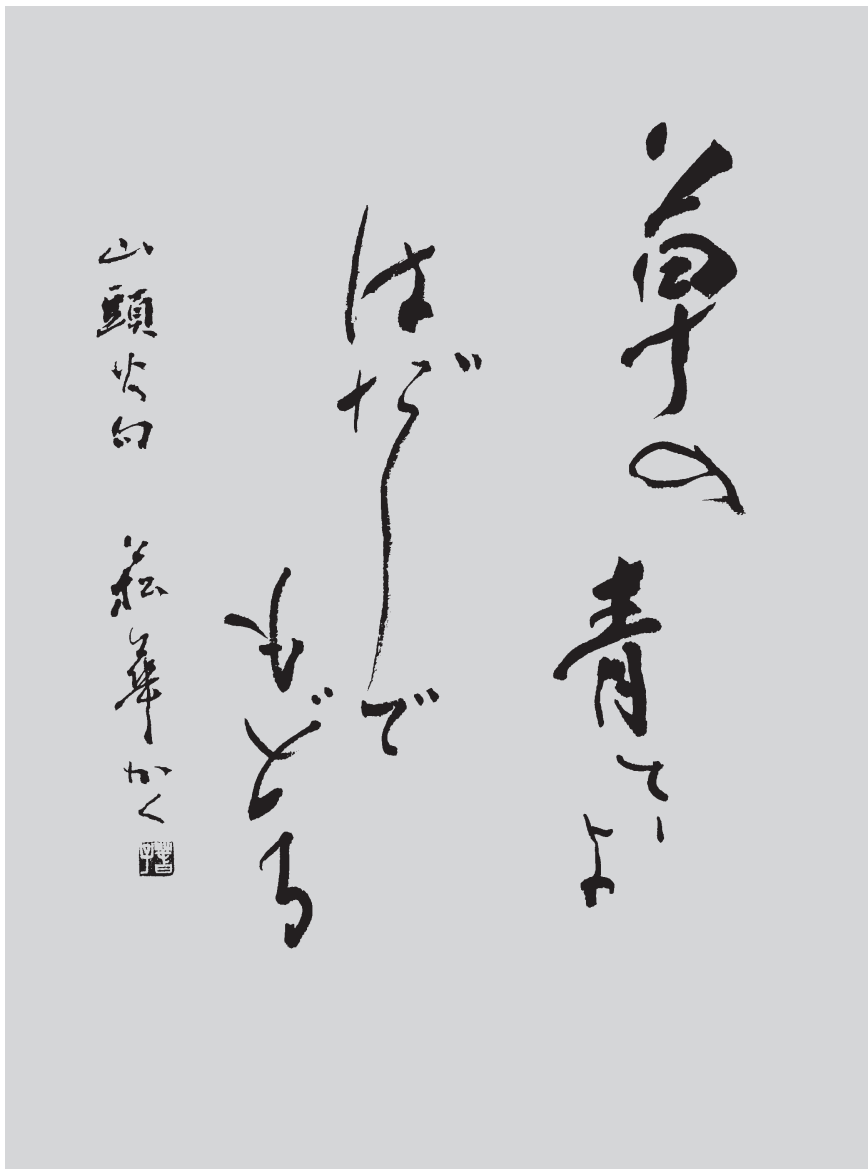 草の青さよ
はだしで
もどる
山頭火句 菘華かく